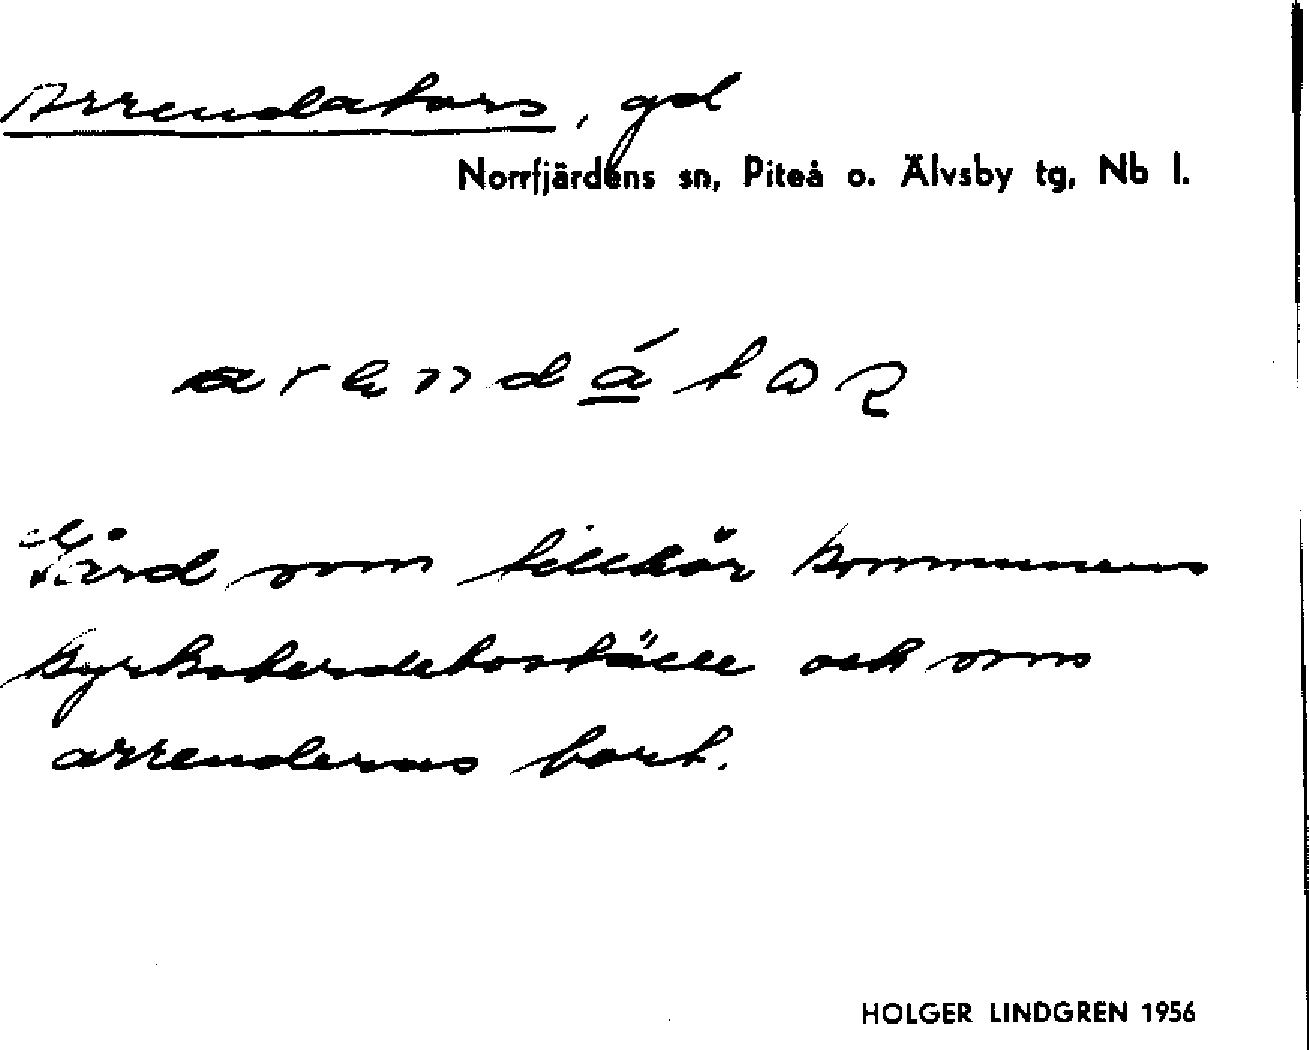 Arrendators, gd
Norrfjärdens sn, Piteå o. Älvsby tg, Nb l.
arendátor
Gård som tillhör kommunens
kyrkoherdeboställe och som
arrenderas bort.
HOLGER LINDGREN 1956